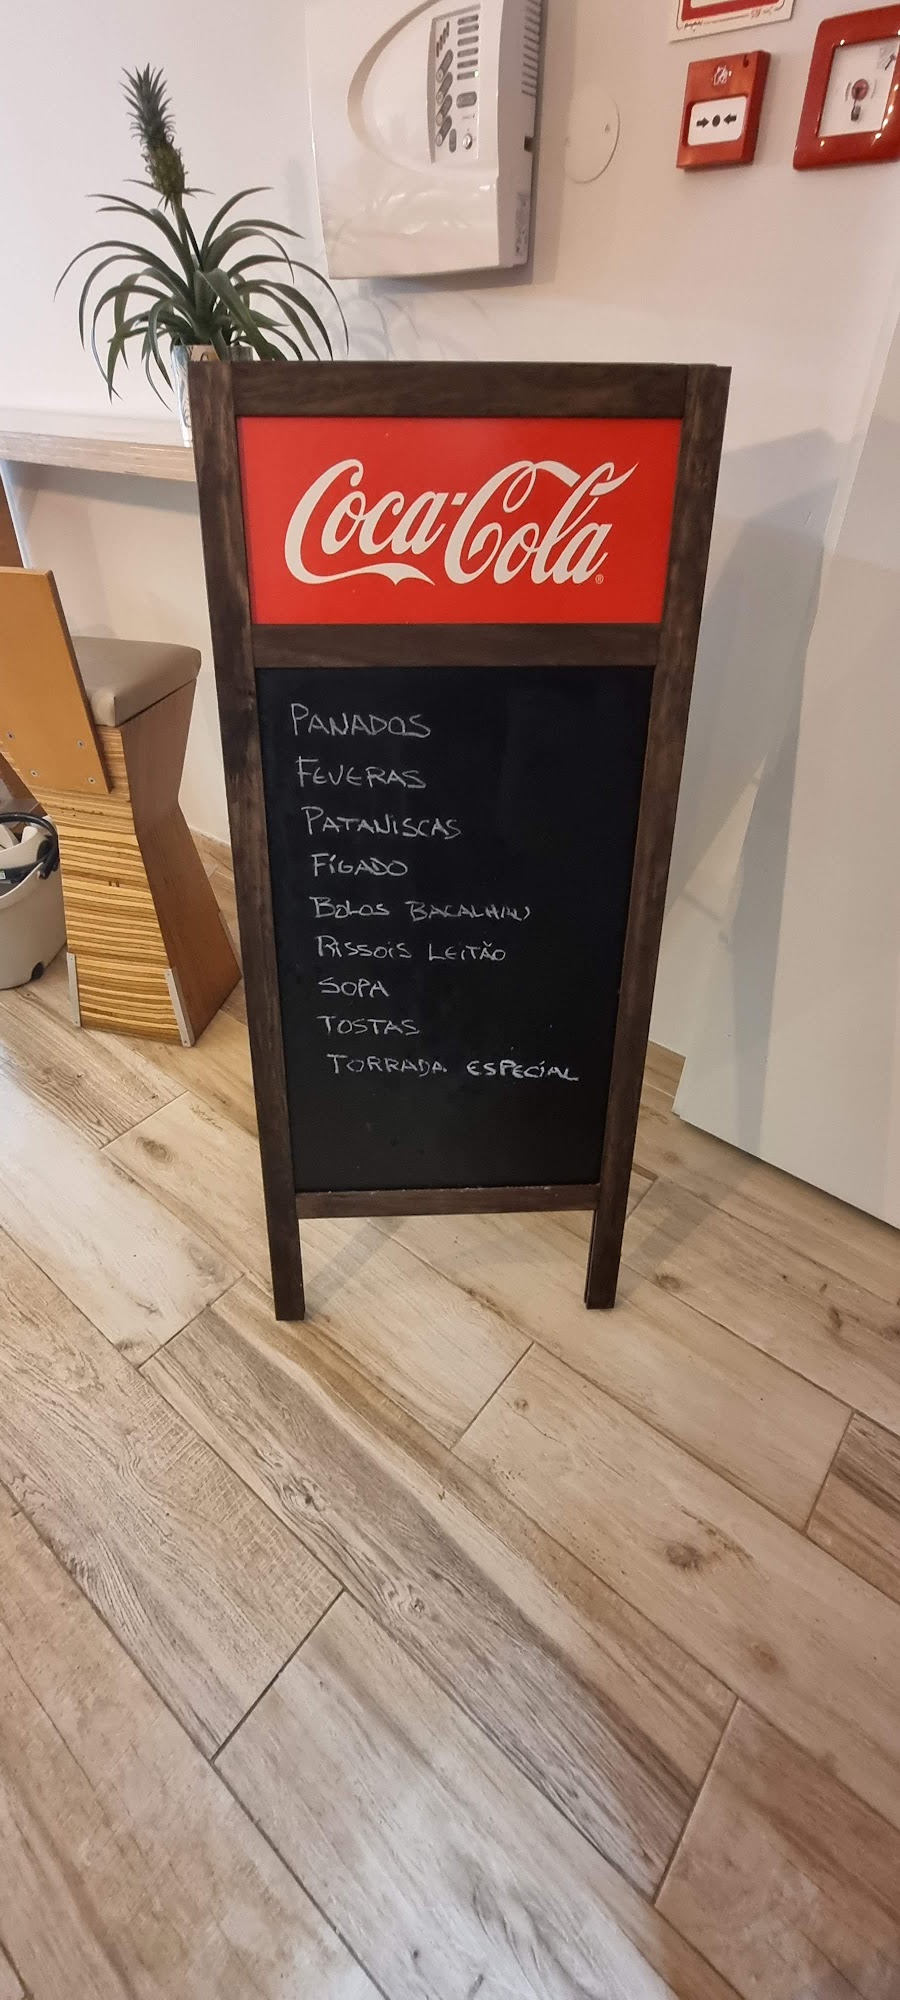 Coca-Cola®
PANADOS
FEVERAS
PATANISCAS
FÍGADO
BOLOS BACALHAU
RISSOIS LEITÃO
SOPA
TOSTAS
TORRADA ESPECIAL